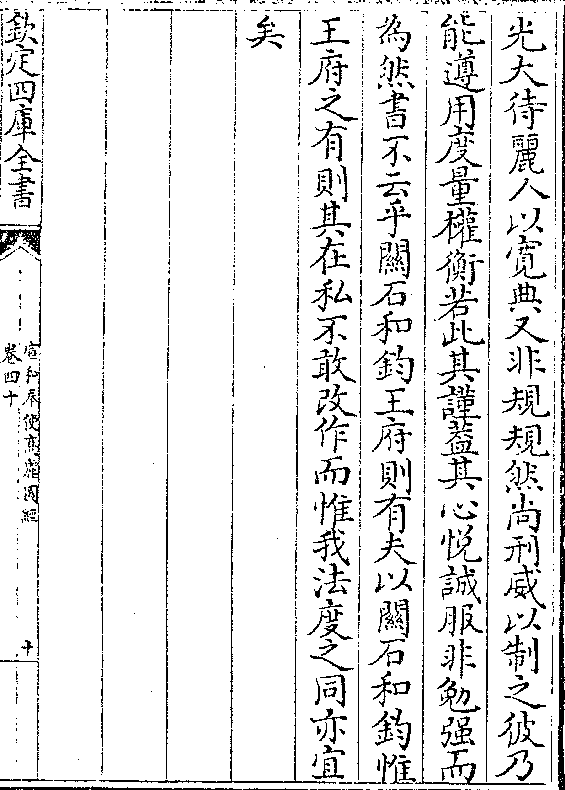 光大待麗人以寛典又非規規然尚刑威以制之彼乃
能遵用度量權衡若此其謹葢其心悦誠服非勉强而
為然書不云乎關石和鈞王府則有夫以關石和鈞惟
王府之有則其在私不敢改作而惟我法度之同亦宜
矣
欽定四庫全書
宣和奉使高麗圖經
卷四十
十